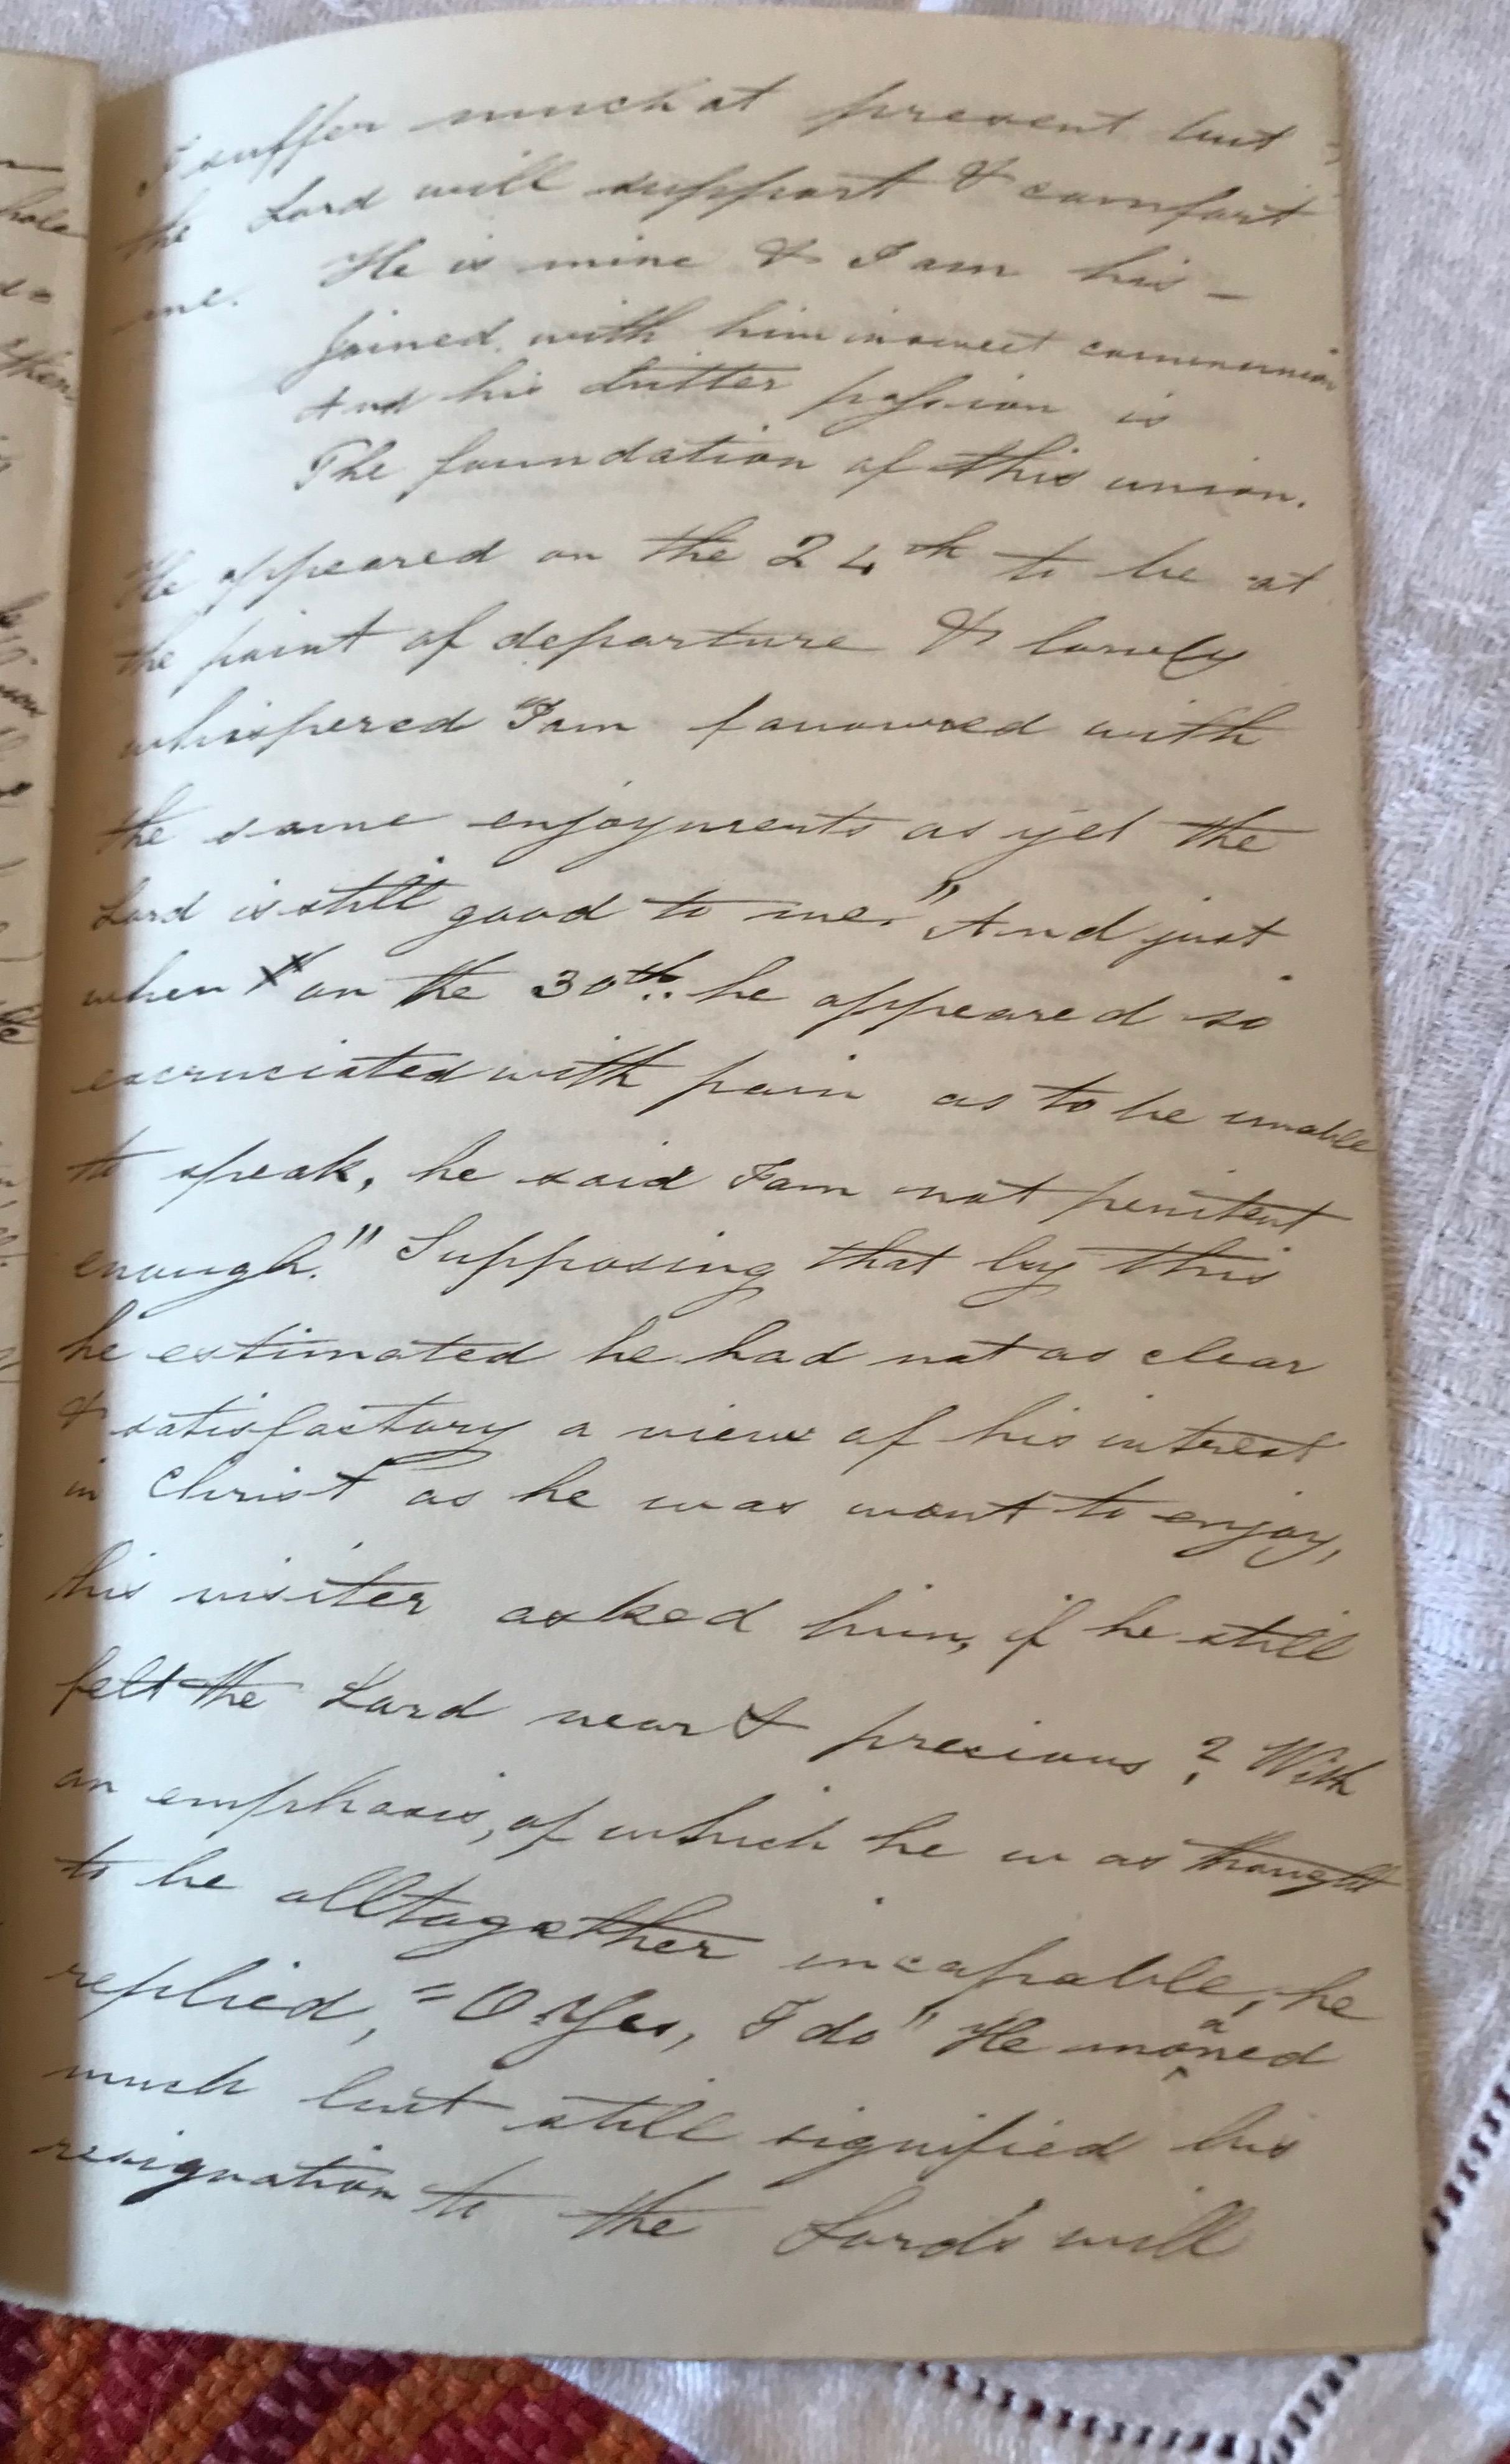 I suffer much at present but
the Lord will support & comfort
me. He is mine & I am his –
Joined with him in sweet communion
And his bitter passion is
The foundation of this union.
He appeared on the 24th to be at
the point of departure & lowly
whispered "I am favoured with
the same enjoyments as yet the
Lord is still good to me." And just
when x" on the 30th. he appeared so
excruciated with pain as to be unable
to speak, he said I am not penitent
enough." Supposing that by this
he estimated he had not as clear
& satisfactory a view of his interest
in Christ as he was wont to enjoy,
his visiter asked him, if he still
felt the Lord near & precious? With
an emphasis, of which he was thought
to be alltogether incapable, he
replied, "O Yes, I do" He moaned
much but still signified his
resignation to the Lord's will